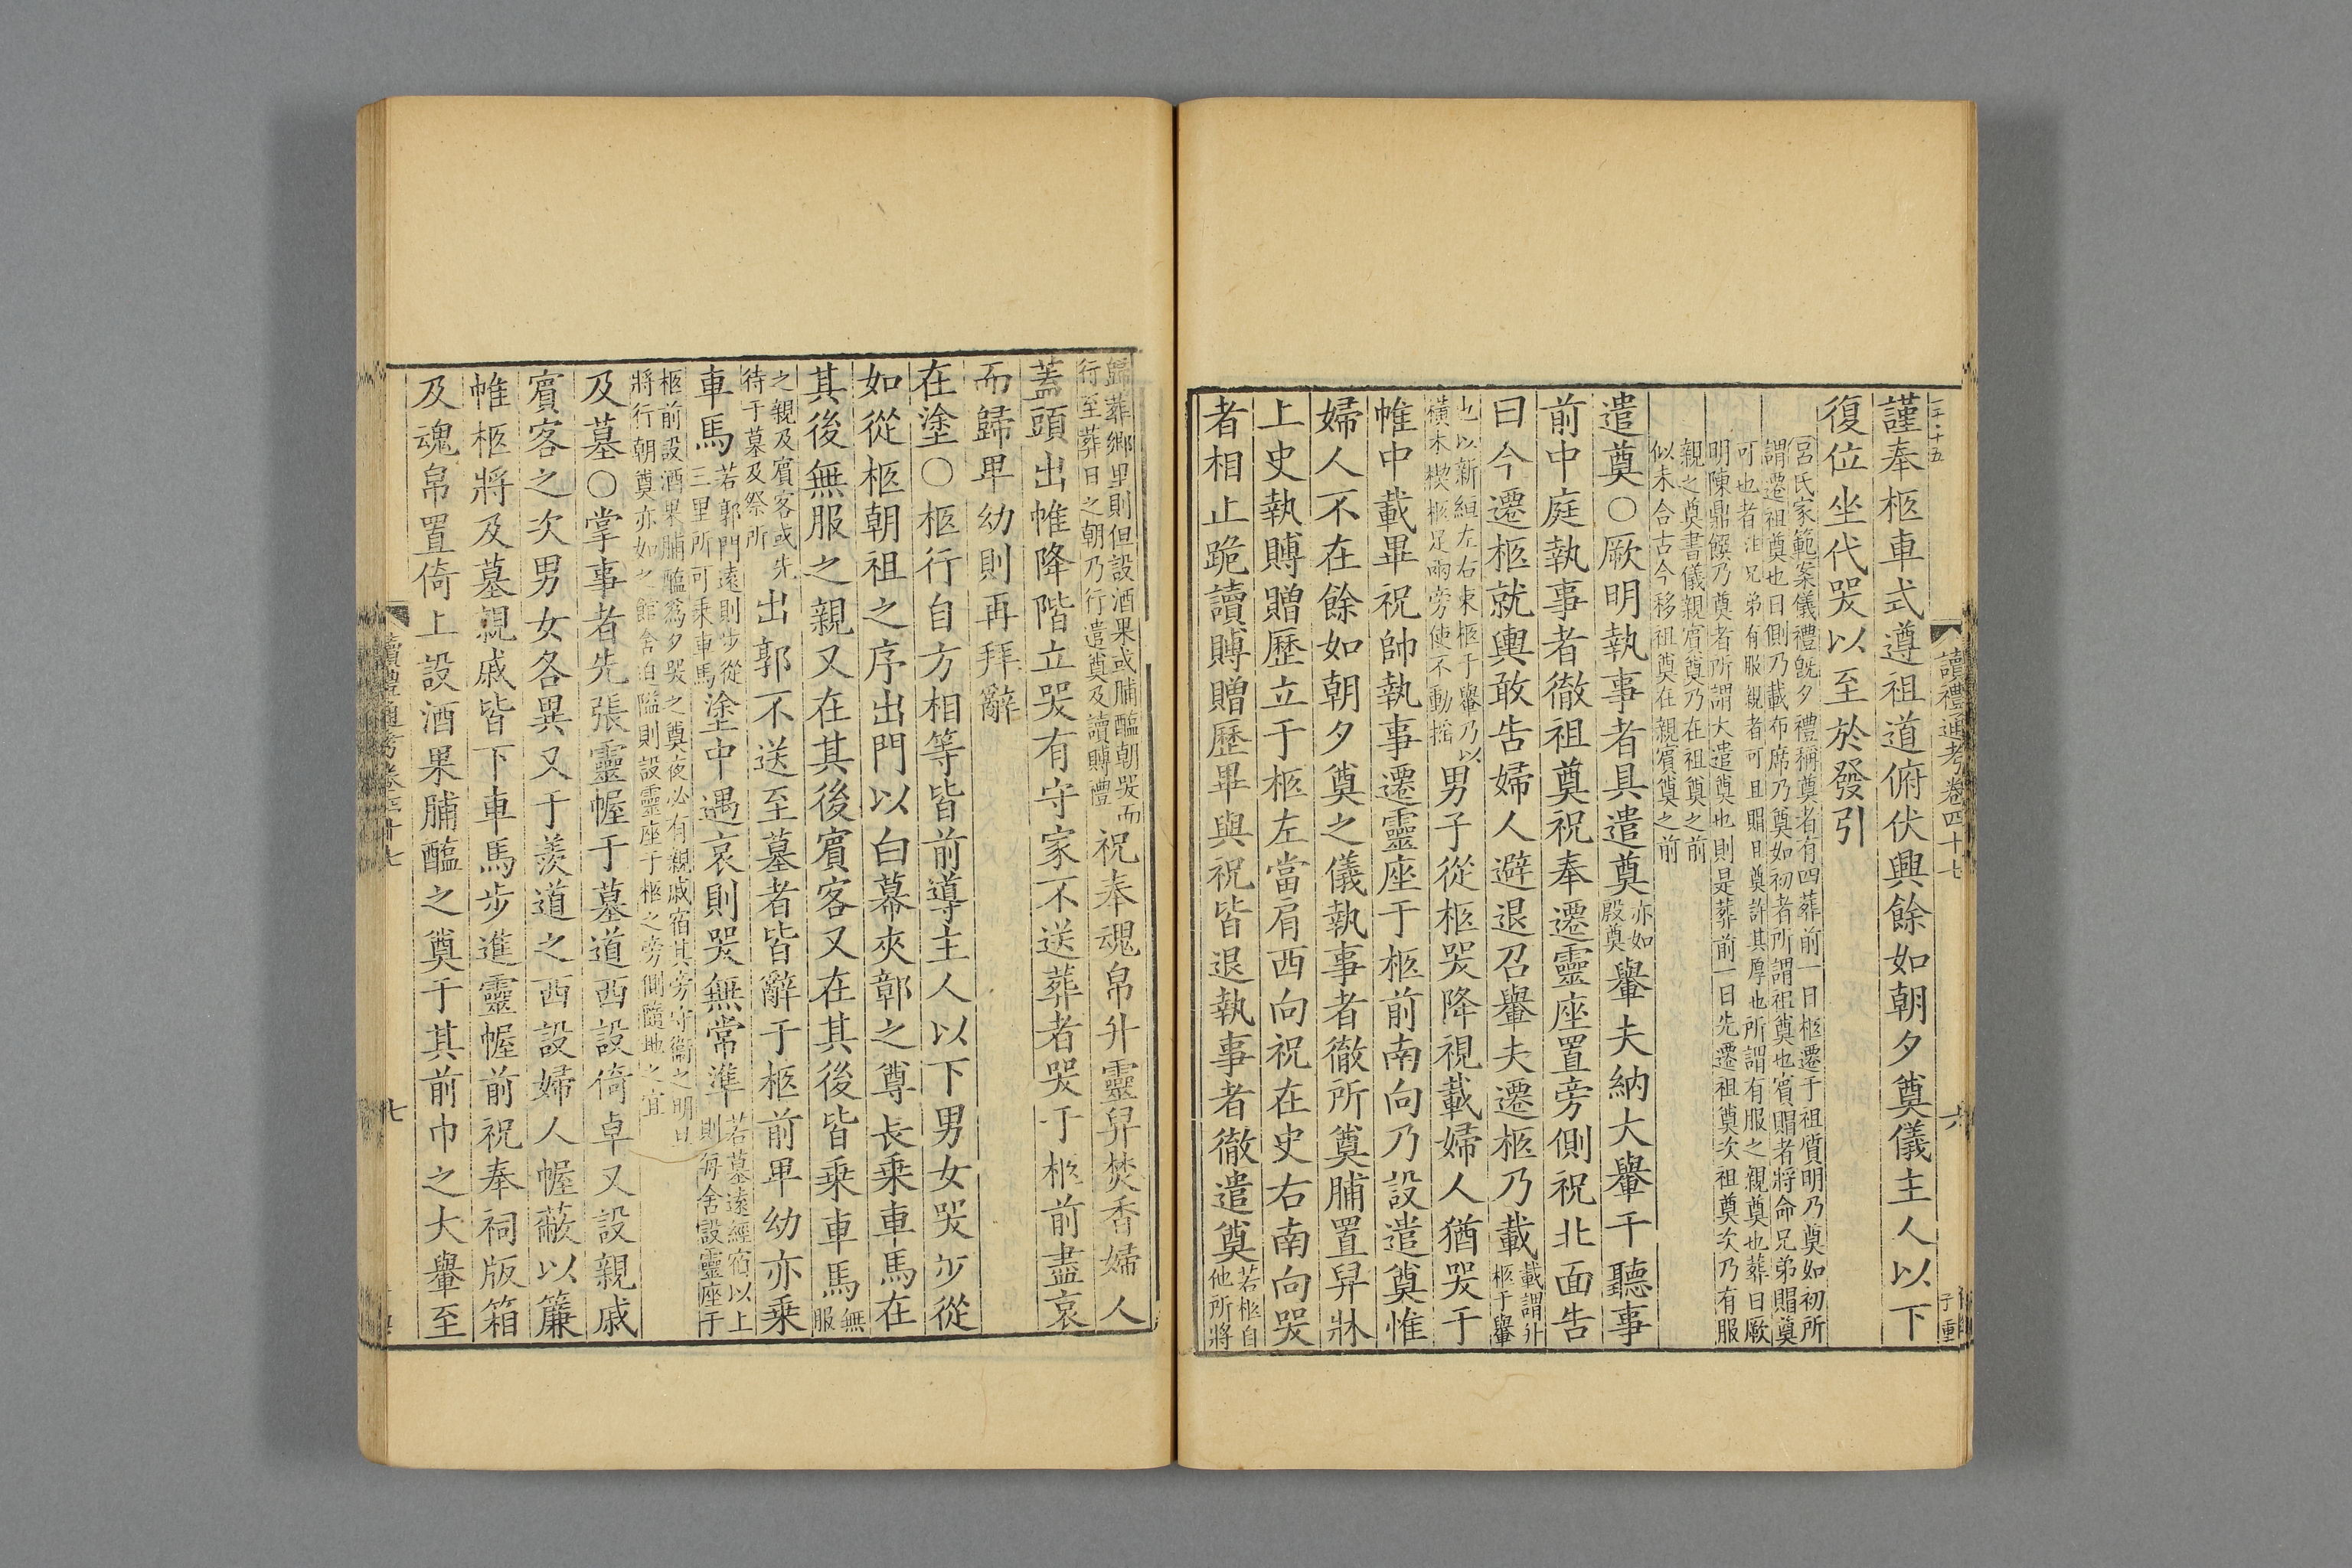 二千十五
讀禮通考卷四十七
六
子重
謹奉柩車式遵祖道俯伏興餘如朝夕奠儀主人以下
復位坐代哭以至於發引
呂氏家範案儀禮旣夕禮稱奠者有四葬前一日柩遷于祖質明乃奠如初所
謂遷祖奠也日側乃載布席乃奠如初者所謂祖奠也賓賵者將命兄弟賵奠
可也者注兄弟有服親者可且賵且奠許其厚也所謂有服之親奠也葬日厥
明陳鼎饌乃奠者所謂大遣奠也則是葬前一日先遷祖奠次祖奠次乃有服
親之奠書儀親賓奠乃在祖奠之前
似未合古今移祖奠在親賓奠之前
遣奠○厥明執事者具遣奠亦如殷奠轝夫納大轝于聽事
前中庭執事者徹祖奠祝奉遷靈座置旁側祝北面告
曰今遷柩就輿敢告婦人避退召轝夫遷柩乃載載謂升柩于轝
也以新組左右束柩于轝乃以橫木楔柩足兩旁使不動搖男子從柩哭降視載婦人猶哭于
帷中載畢祝帥執事遷靈座于柩前南向乃設遣奠惟
婦人不在餘如朝夕奠之儀執事者徹所奠脯置舁牀
上史執賻贈歷立于柩左當肩西向祝在史右南向哭
者相止跪讀賻贈歷畢與祝皆退執事者徹遣奠若柩自他所將
歸葬鄉里則但設酒果或脯醢朝哭而行至葬日之朝乃行遣奠及讀賻禮祝奉魂帛升靈舁焚香婦人
蓋頭出帷降階立哭有守家不送葬者哭于柩前盡哀
而歸卑幼則再拜辭
在塗○柩行自方相等皆前導主人以下男女哭步從
如從柩朝祖之序出門以白幕夾鄣之尊長乘車馬在
其後無服之親又在其後賓客又在其後皆乘車馬無服
之親及賓客或先待于墓及祭所出郭不送至墓者皆辭于柩前卑幼亦乘
車馬若郭門遠則步從三里所可乘車馬塗中遇哀則哭無常準若墓遠經宿以上則每舍設靈座于
柩前設酒果脯醢爲夕哭之奠夜必有親戚宿其旁守衞之明日
將行朝奠亦如之館舍迫隘則設靈座于柩之旁側隨地之宜
及墓○掌事者先張靈幄于墓道西設倚卓又設親戚
賓客之次男女各異又于羨道之西設婦人幄蔽以簾
帷柩將及墓親戚皆下車馬步進靈幄前祝奉祠版箱
及魂帛置倚上設酒果脯醢之奠于其前巾之大轝至
七